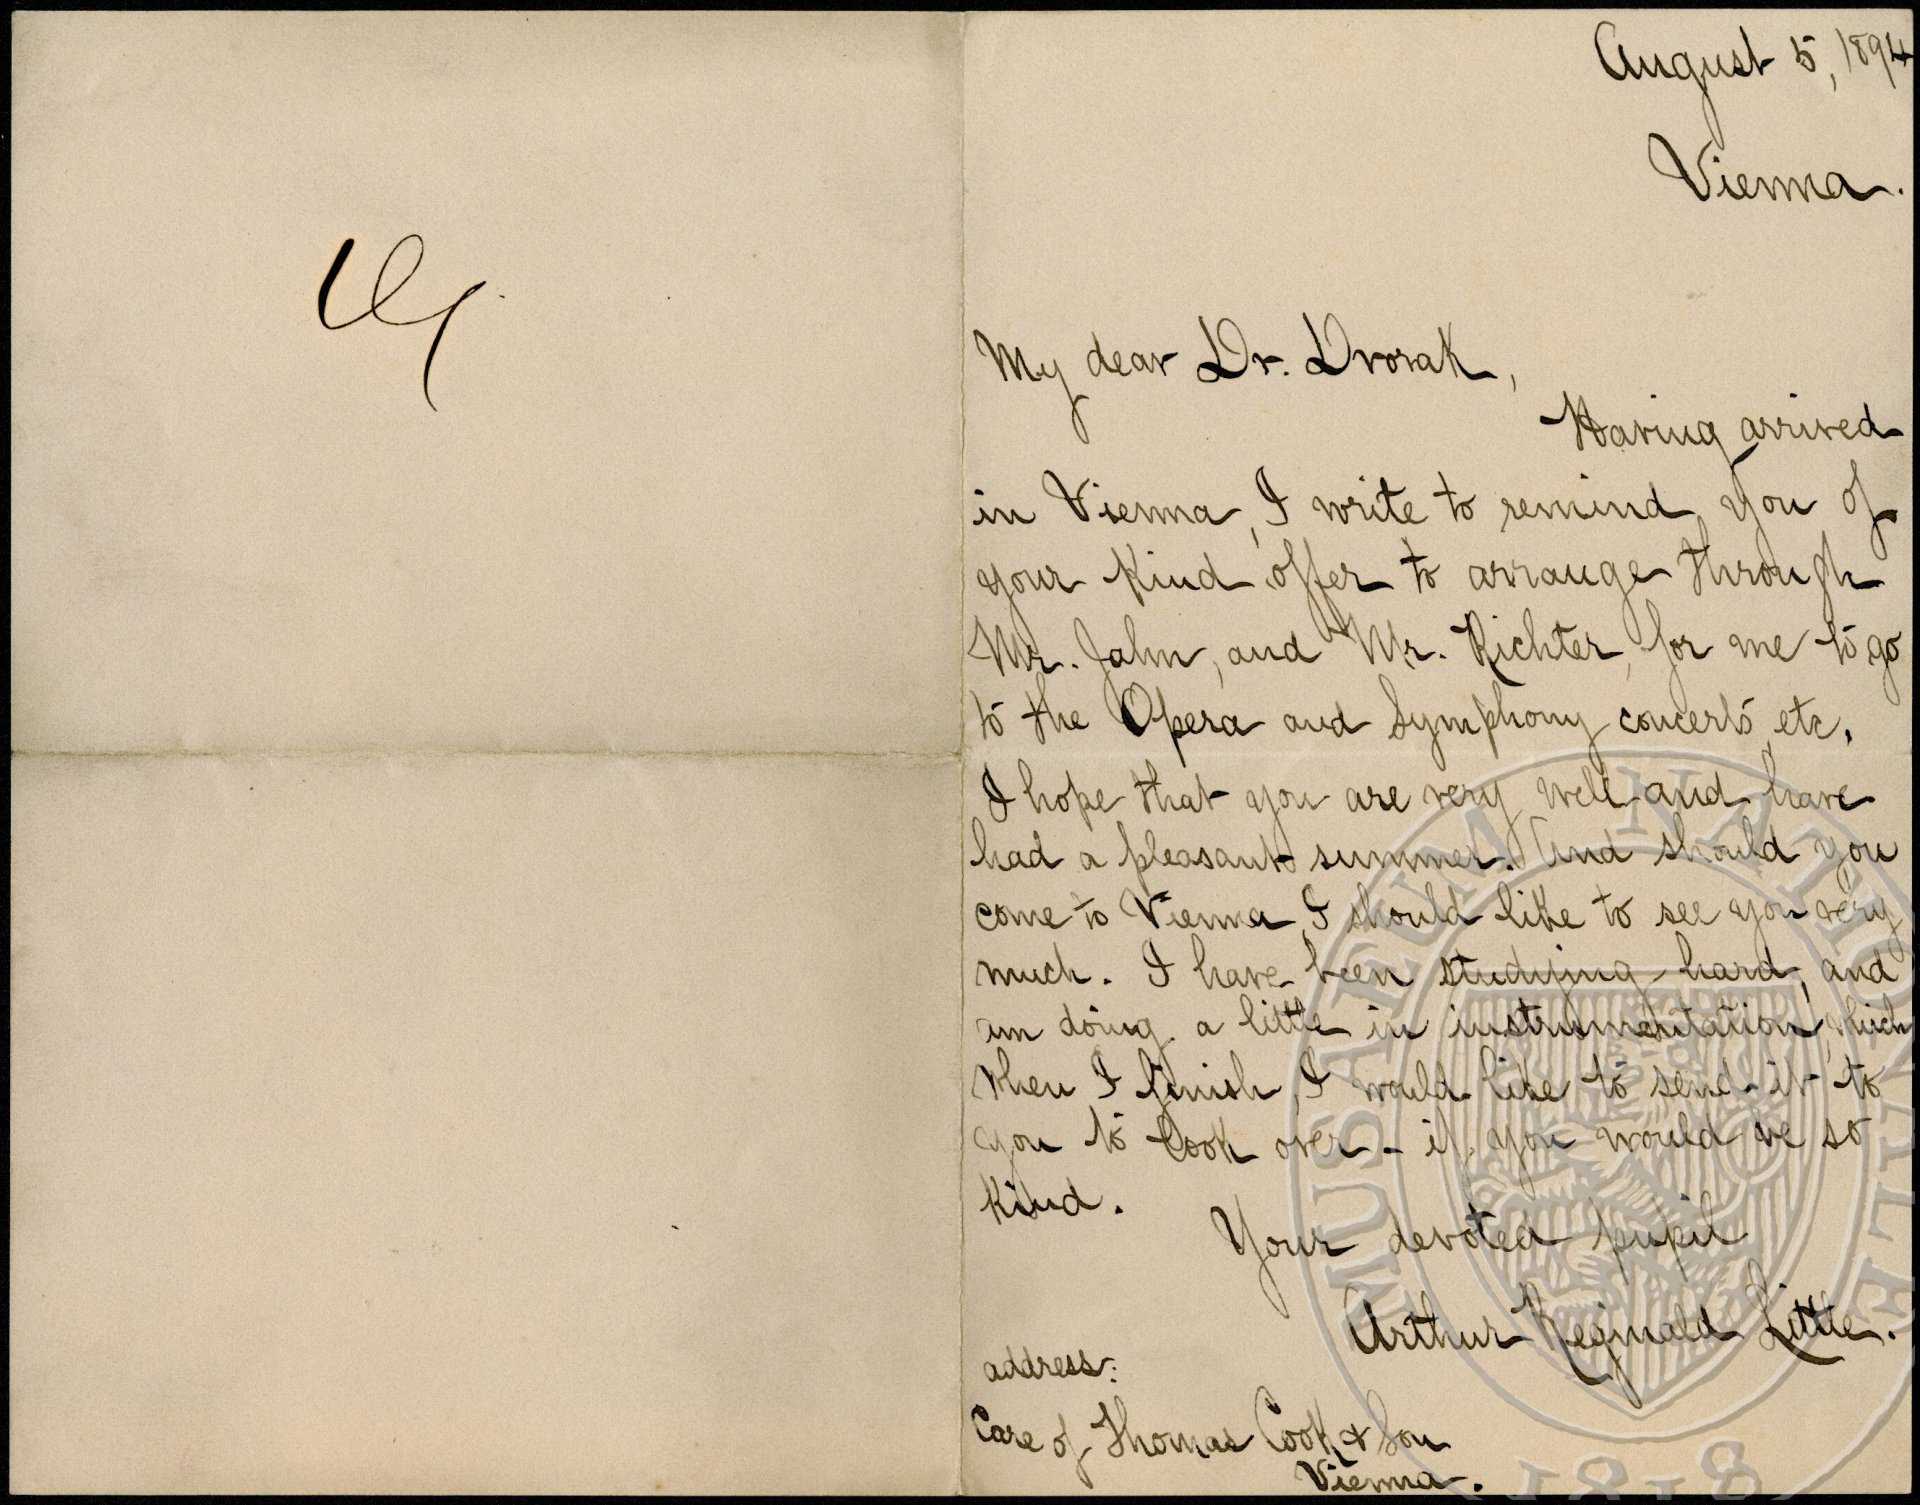 August 5, 1894
Vienna.
My dear Dr. Dvorak,
Having arrived
in Vienna, I write to remind you of
your kind offer to arrange through
Mr. Jahn, and Mr. Richter, for me to go
to the Opera and Symphony concerts, etc.
I hope that you are very well and have
had a pleasant summer. And should you
come to Vienna, I should like to see you very
much. I have been studying hard, and
am doing a little in instrumentation, which
when I finish, I would like to send it to
you to look over - if you would be so
kind.
Your devoted pupil
Arthur Reginald Little.
address:
Care of Thomas Cook & Son
Vienna.
MUSAEUM NATIONALE
1818